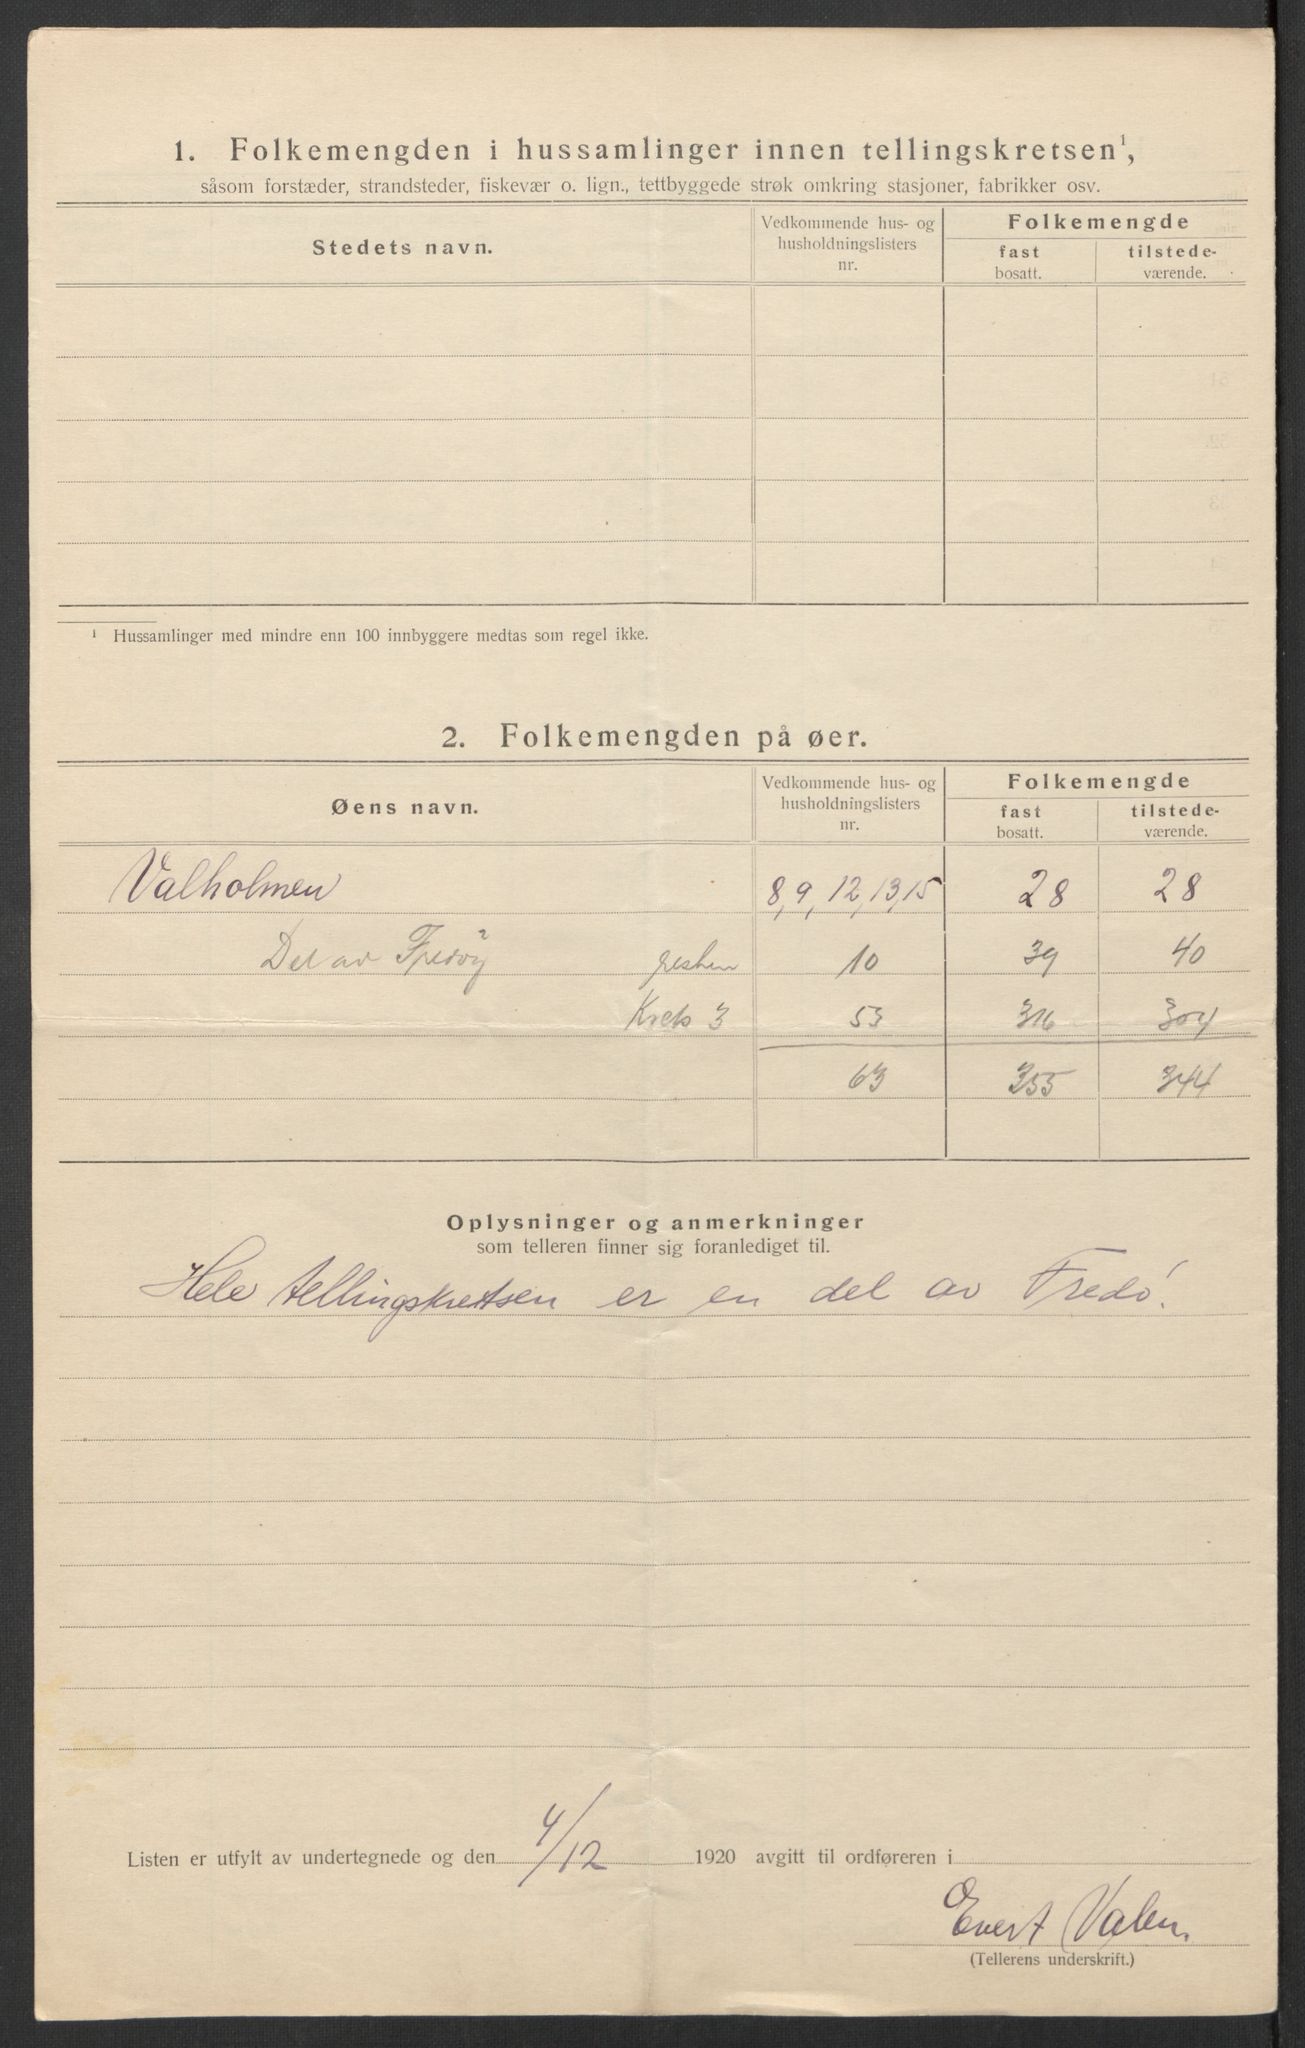 1. Folkemengden i hussamlinger innen tellingskretsen¹,
såsom forstæder, strandsteder, fiskevær o. lign., tettbyggede strøk omkring stasjoner, fabrikker osv.
Stedets navn. Vedkommende hus- og husholdningslisters nr. Folkemengde
fast bosatt. tilstede-værende.
¹ Hussamlinger med mindre enn 100 innbyggere medtas som regel ikke.
2. Folkemengden på øer.
Øens navn. Vedkommende hus- og husholdningslisters nr. Folkemengde
fast bosatt. tilstede-værende.
Valholmen 8, 9, 12, 13, 15 28 28
Del av Fredöy resten 10 39 40
Krets 3 53 316 304
63 355 344
Oplysninger og anmerkninger
som telleren finner sig foranlediget til.
Hele tellingskretsen er en del av Fredö.
Listen er utfylt av undertegnede og den 4/12 1920 avgitt til ordføreren i
Evert Valen.
(Tellerens underskrift.)